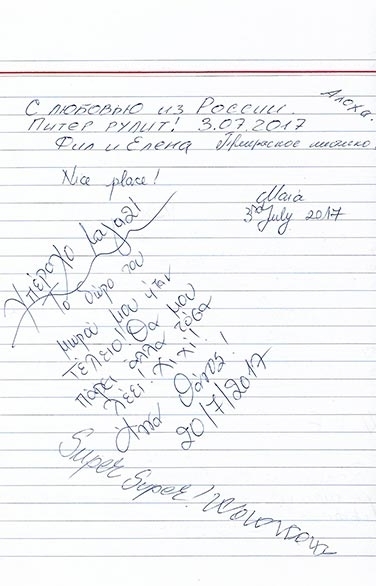 Алоха.
С любовью из России.
Питер рулит! 3.07.2017
Фил и Елена Прекрасное
Nice place!
Maia
3rd July 2017
Υπέροχο μαγαζί
Το δώρο του
μωρού μου ήταν
τέλειο! Θα μου
πάρει αλλά τόσα
λέει! Χι χι!
Άννα
20/7/2017
Super Super!